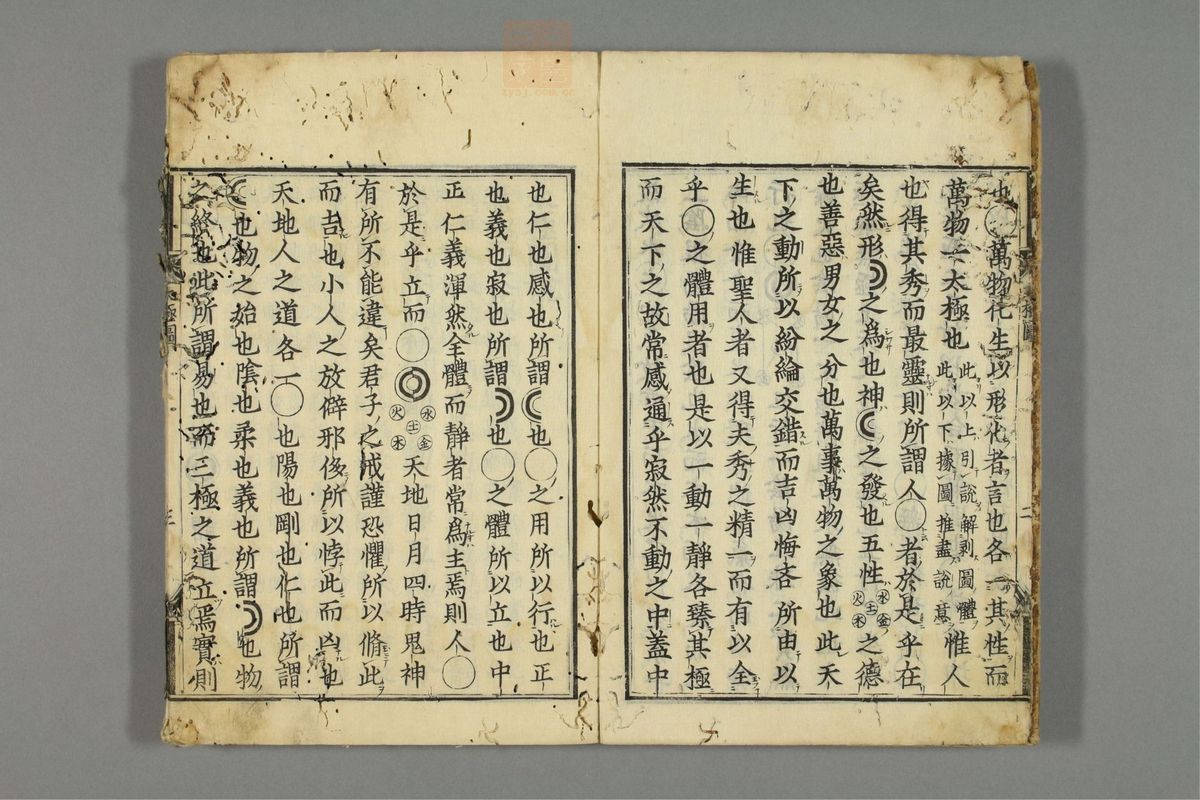 也○萬物化生以形化者言也各一其性而
萬物一太極也此以上引說解剥圖體此以下據圖推盡說意惟人
也得其秀而最靈則所謂人○者於是乎在
矣然形☽之爲也神☾之發也五性水火土金木之德
也善惡男女之分也萬事萬物之象也此天
下之動所以紛綸交錯而吉凶悔吝所由以
生也惟聖人者又得夫秀之精一而有以全
乎○之體用者也是以一動一靜各臻其極
而天下之故常感通乎寂然不動之中蓋中
也仁也感也所謂☾也○之用所以行也正
也義也寂也所謂☽也○之體所以立也中
正仁義渾然全體而靜者常爲主焉則人○
於是乎立而○◎水火土金木天地日月四時鬼神
有所不能違矣君子之戒謹恐懼所以脩此
而吉也小人之放僻邪侈所以悖此而凶也
天地人之道各一○也陽也剛也仁也所謂
☾也物之始也陰也柔也義也所謂☽也物
之終也此所謂易也而三極之道立焉實則
極圖
二
極圖
三